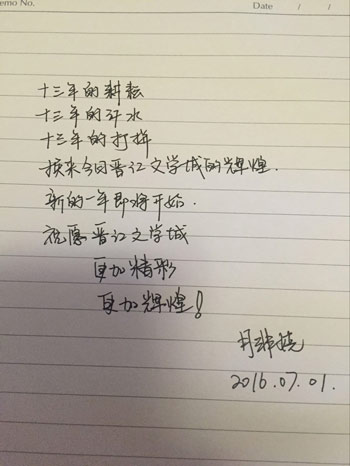 emo No.
Date / /
十三年的耕耘
十三年的汗水
十三年的打拼
换来今日晋江文学城的辉煌.
新的一年即将开始.
祝愿晋江文学城
更加精彩
更加辉煌!
2016.07.01.